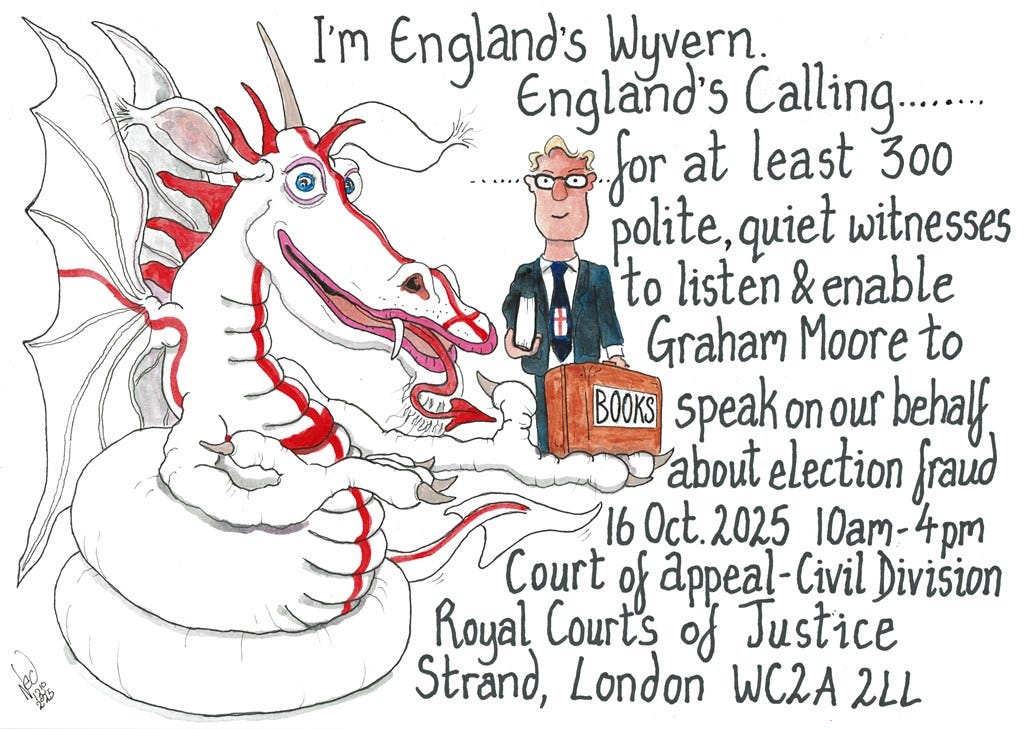 I'm England's Wyvern.
England's Calling.........
......
....for at least 300
polite, quiet witnesses
to listen & enable
Graham Moore to
BOOKS
speak on our behalf
about election fraud
16 Oct. 2025 10am-4pm
Court of appeal-Civil Division
Royal Courts of Justice
Strand, London WC2A 2LL
2025